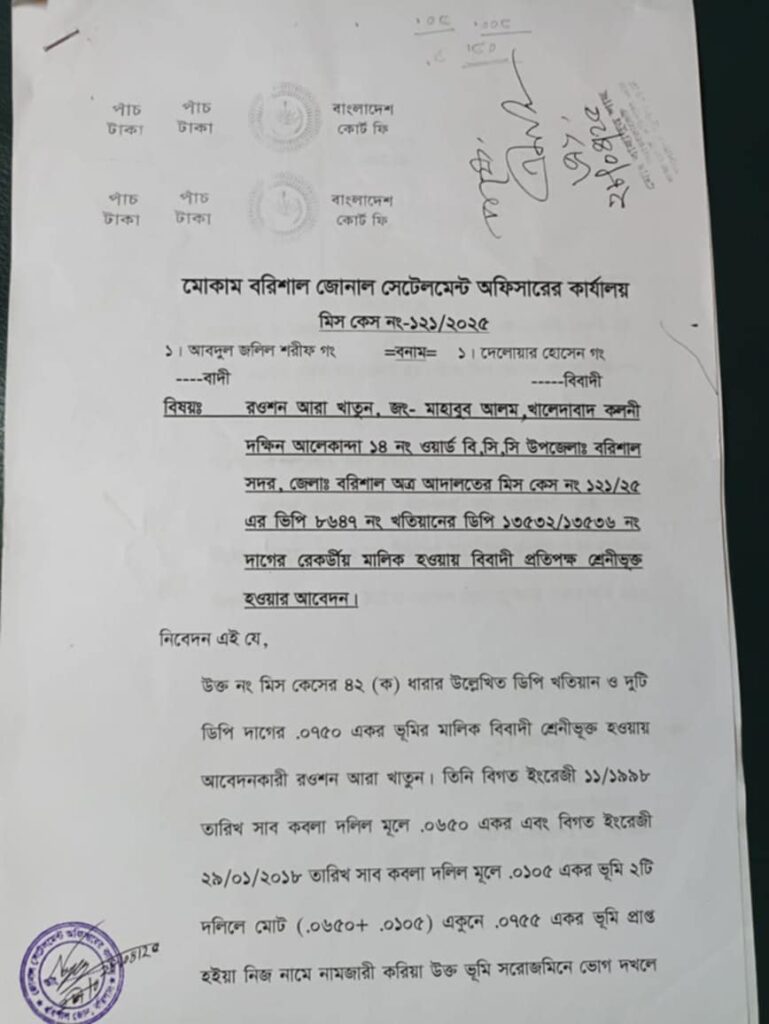 .০৫ .০০৫
পাঁচ পাঁচ বাংলাদেশ
টাকা টাকা কোর্ট ফি
পাঁচ পাঁচ বাংলাদেশ
টাকা টাকা কোর্ট ফি
মোকাম বরিশাল জোনাল সেটেলমেন্ট অফিসারের কার্যালয়
মিস কেস নং-১২১/২০২৫
১। আবদুল জলিল শরীফ গং =বনাম= ১। দেলোয়ার হোসেন গং
----বাদী -----বিবাদী
বিষয়ঃ রওশন আরা খাতুন, জং- মাহাবুব আলম,খালেদাবাদ কলনী
দক্ষিন আলেকান্দা ১৪ নং ওয়ার্ড বি,সি,সি উপজেলাঃ বরিশাল
সদর, জেলাঃ বরিশাল অত্র আদালতের মিস কেস নং ১২১/২৫
এর ডিপি ৮৬৪৭ নং খতিয়ানের ডিপি ১৩৫৩২/১৩৫৩৬ নং
দাগের রেকর্ডীয় মালিক হওয়ায় বিবাদী প্রতিপক্ষ শ্রেনীভূক্ত
হওয়ার আবেদন।
নিবেদন এই যে,
উক্ত নং মিস কেসের ৪২ (ক) ধারার উল্লেখিত ডিপি খতিয়ান ও দুটি
ডিপি দাগের .০৭৫০ একর ভূমির মালিক বিবাদী শ্রেনীভূক্ত হওয়ায়
আবেদনকারী রওশন আরা খাতুন। তিনি বিগত ইংরেজী ১১/১৯৯৮
তারিখ সাব কবলা দলিল মূলে .০৬৫০ একর এবং বিগত ইংরেজী
২৯/০১/২০১৮ তারিখ সাব কবলা দলিল মূলে .০১০৫ একর ভূমি ২টি
দলিলে মোট (.০৬৫০+ .০১০৫) একুনে .০৭৫৫ একর ভূমি প্রাপ্ত
হইয়া নিজ নামে নামজারী করিয়া উক্ত ভূমি সরোজমিনে ভোগ দখলে